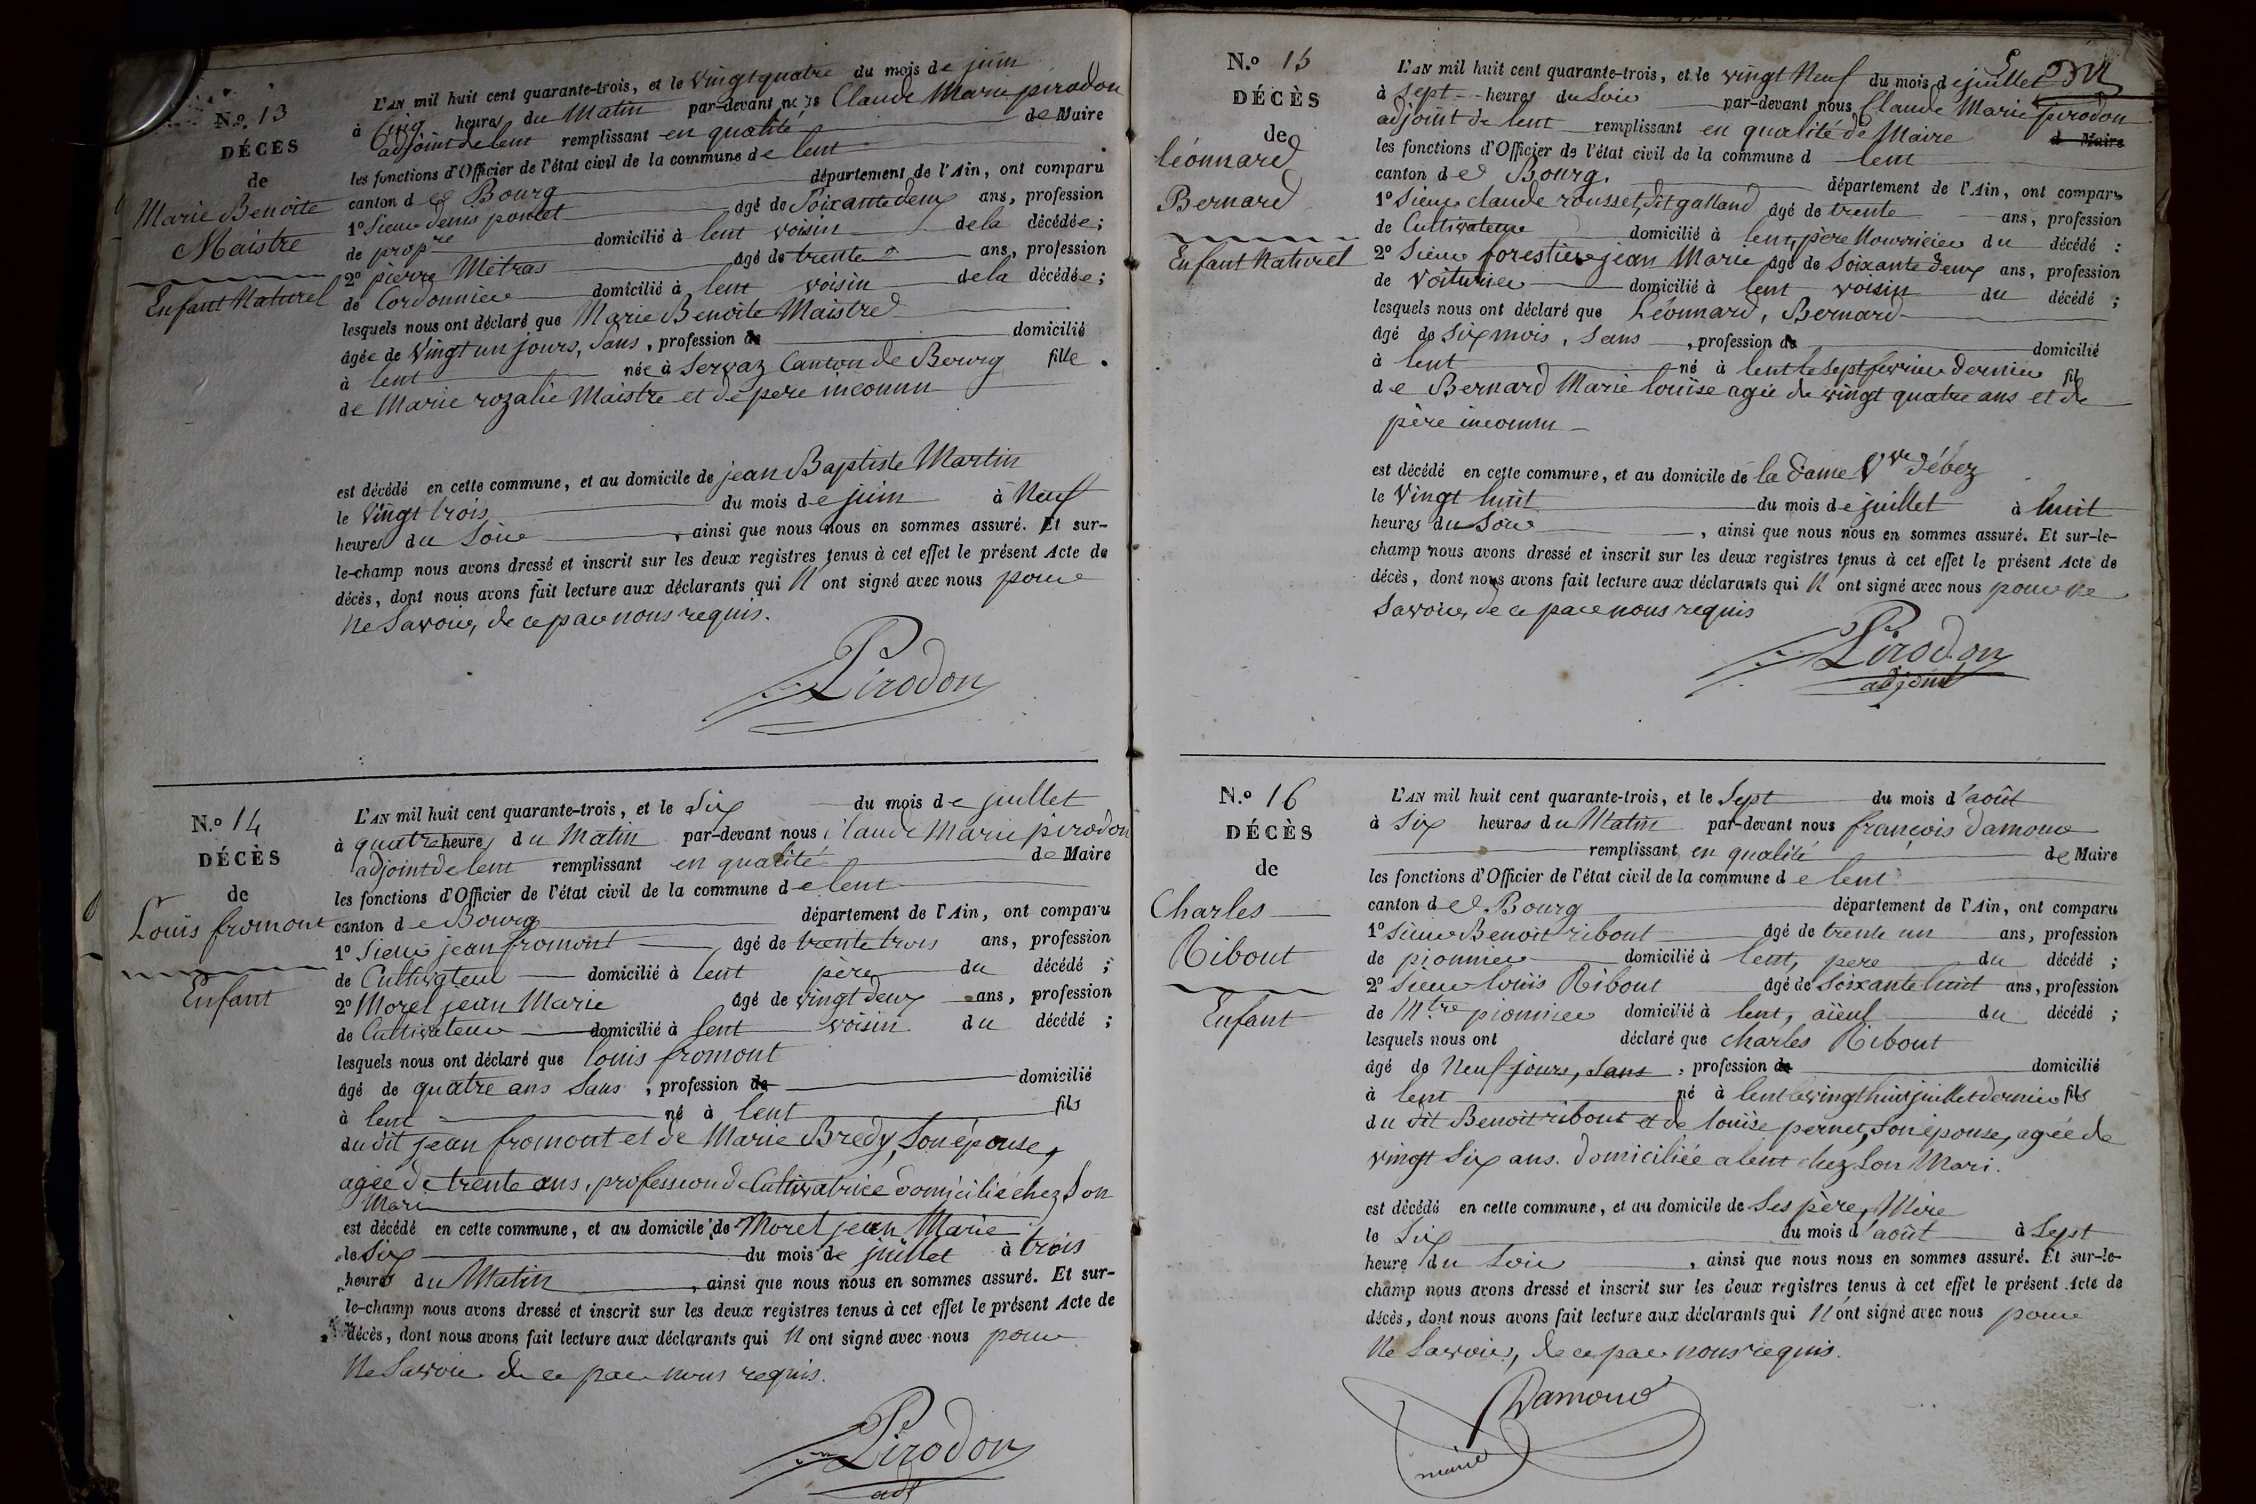 N.o 13
DÉCÈS
de
Marie Benoite
Maistre
Enfant Naturel
L'AN mil huit cent quarante-trois, et le vingt quatre du mois de juin
à Cinq heures du Matin par-devant nous Claude Marie pirodon
adjoint de lent remplissant en qualité de Maire
les fonctions d'Officier de l'état civil de la commune de lent
canton de Bourg département de l'Ain, ont comparu
1o Sieur denis poncet agé de Soixante deux ans, profession
de propre domicilié à lent voisin de la décédée;
2o pierre Métras agé de trente ans, profession
de Cordonnier domicilié à lent voisin de la décédée;
lesquels nous ont déclaré que Marie Benoite Maistre
âgée de Vingt un jours, Sans, profession de domicilié
à lent née à Servaz Canton de Bourg fille
de Marie rozalie Maistre et de pere inconnu
est décédé en cette commune, et au domicile de jean Baptiste Martin
le Vingt trois du mois de juin à Neuf
heures du Soir, ainsi que nous nous en sommes assuré. Et sur-
le-champ nous avons dressé et inscrit sur les deux registres tenus à cet effet le présent Acte de
décès, dont nous avons fait lecture aux déclarants qui N'ont signé avec nous pour
Ne Savoir, de ce par nous requis.
Pirodon
N.o 14
DÉCÈS
de
Louis fromont
Enfant
L'AN mil huit cent quarante-trois, et le Six du mois de juillet
à quatre heures du Matin par-devant nous Claude Marie pirodon
adjoint de lent remplissant en qualité de Maire
les fonctions d'Officier de l'état civil de la commune de lent
canton de Bourg département de l'Ain, ont comparu
1o Sieur jean fromont âgé de trente trois ans, profession
de Cultivateur domicilié à lent père du décédé;
2o Morel jean Marie âgé de vingt deux ans, profession
de Cultivateur domicilié à lent voisin du décédé;
lesquels nous ont déclaré que louis fromont
âgé de quatre ans Sans, profession de domicilié
à lent né à lent fils
du dit jean fromont et de Marie Bredy, Son épouse,
agée de trente ans, profession de Cultivatrice domiciliée chez Son
Mari
est décédé en cette commune, et au domicile de Morel jean Marie
le Six du mois de juillet à trois
heures du Matin, ainsi que nous nous en sommes assuré. Et sur-
le-champ nous avons dressé et inscrit sur les deux registres tenus à cet effet le présent Acte de
décès, dont nous avons fait lecture aux déclarants qui N'ont signé avec nous pour
Ne Savoir de ce par nous requis.
Pirodon
adj
N.o 15
DÉCÈS
de
léonnard
Bernard
Enfant Naturel
L'AN mil huit cent quarante-trois, et le vingt Neuf du mois de juillet
à Sept heures du Soir par-devant nous Claude Marie pirodon
adjoint de lent remplissant en qualité de Maire d Maire
les fonctions d'Officier de l'état civil de la commune d lent
canton de Bourg. département de l'Ain, ont comparu
1o Sieur claude rousset, dit galland âgé de trente ans, profession
de Cultivateur domicilié à lent, père Nourricier du décédé:
2o Sieur forestier jean Marie âgé de Soixante deux ans, profession
de Voiturier domicilié à lent voisin du décédé;
lesquels nous ont déclaré que Léonnard, Bernard
âgé de Six mois, Sans, profession de domicilié
à lent né à lent le Sept février dernier fils
de Bernard Marie louise agée de vingt quatre ans et de
père inconnu
est décédé en cette commune, et au domicile de la dame Vve débez
le Vingt huit du mois de juillet à huit
heures du Soir, ainsi que nous nous en sommes assuré. Et sur-le-
champ nous avons dressé et inscrit sur les deux registres tenus à cet effet le présent Acte de
décès, dont nous avons fait lecture aux déclarants qui N'ont signé avec nous pour Ne
Savoir, de ce par nous requis
Pirodon
adjoint
N.o 16
DÉCÈS
de
Charles
Ribout
Enfant
L'AN mil huit cent quarante-trois, et le Sept du mois d'août
à Six heures du Matin par-devant nous françois damour
remplissant en qualité de Maire
les fonctions d'Officier de l'état civil de la commune de lent
canton de Bourg département de l'Ain, ont comparu
1o Sieur Benoit ribout âgé de trente un ans, profession
de pionnier domicilié à lent, pere du décédé;
2o Sieur louis Ribout âgé de Soixante huit ans, profession
de Mtre pionnier domicilié à lent, aïeul du décédé;
lesquels nous ont déclaré que charles Ribout
âgé de Neuf jours, sans, profession de domicilié
à lent né à lent le vingt huit juillet dernier fils
du dit Benoit ribout et de louise pernet, Son épouse, agée de
vingt Six ans. domiciliée a lent chez Son Mari.
est décédé en cette commune, et au domicile de Ses père, Mère
le Six du mois d'août à Sept
heure du Soir, ainsi que nous nous en sommes assuré. Et sur-le-
champ nous avons dressé et inscrit sur les deux registres tenus à cet effet le présent Acte de
décès, dont nous avons fait lecture aux déclarants qui N'ont signé avec nous pour
Ne Savoir, de ce par nous requis.
Damour
maire